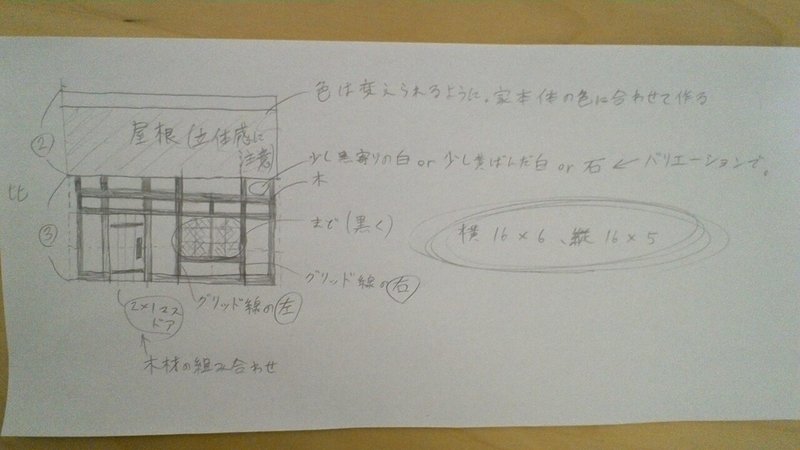 色は変えられるように。家本体の色に合わせて作る
屋根(立体感に
注意)
②
少し黒寄りの白 or 少し黄ばんだ白 or 石 ← バリエーションで。
木
比
③
まど(黒く)
横16×6、縦16×5
グリッド線の右
グリッド線の左
2×1マス
ドア
木材の組み合わせ